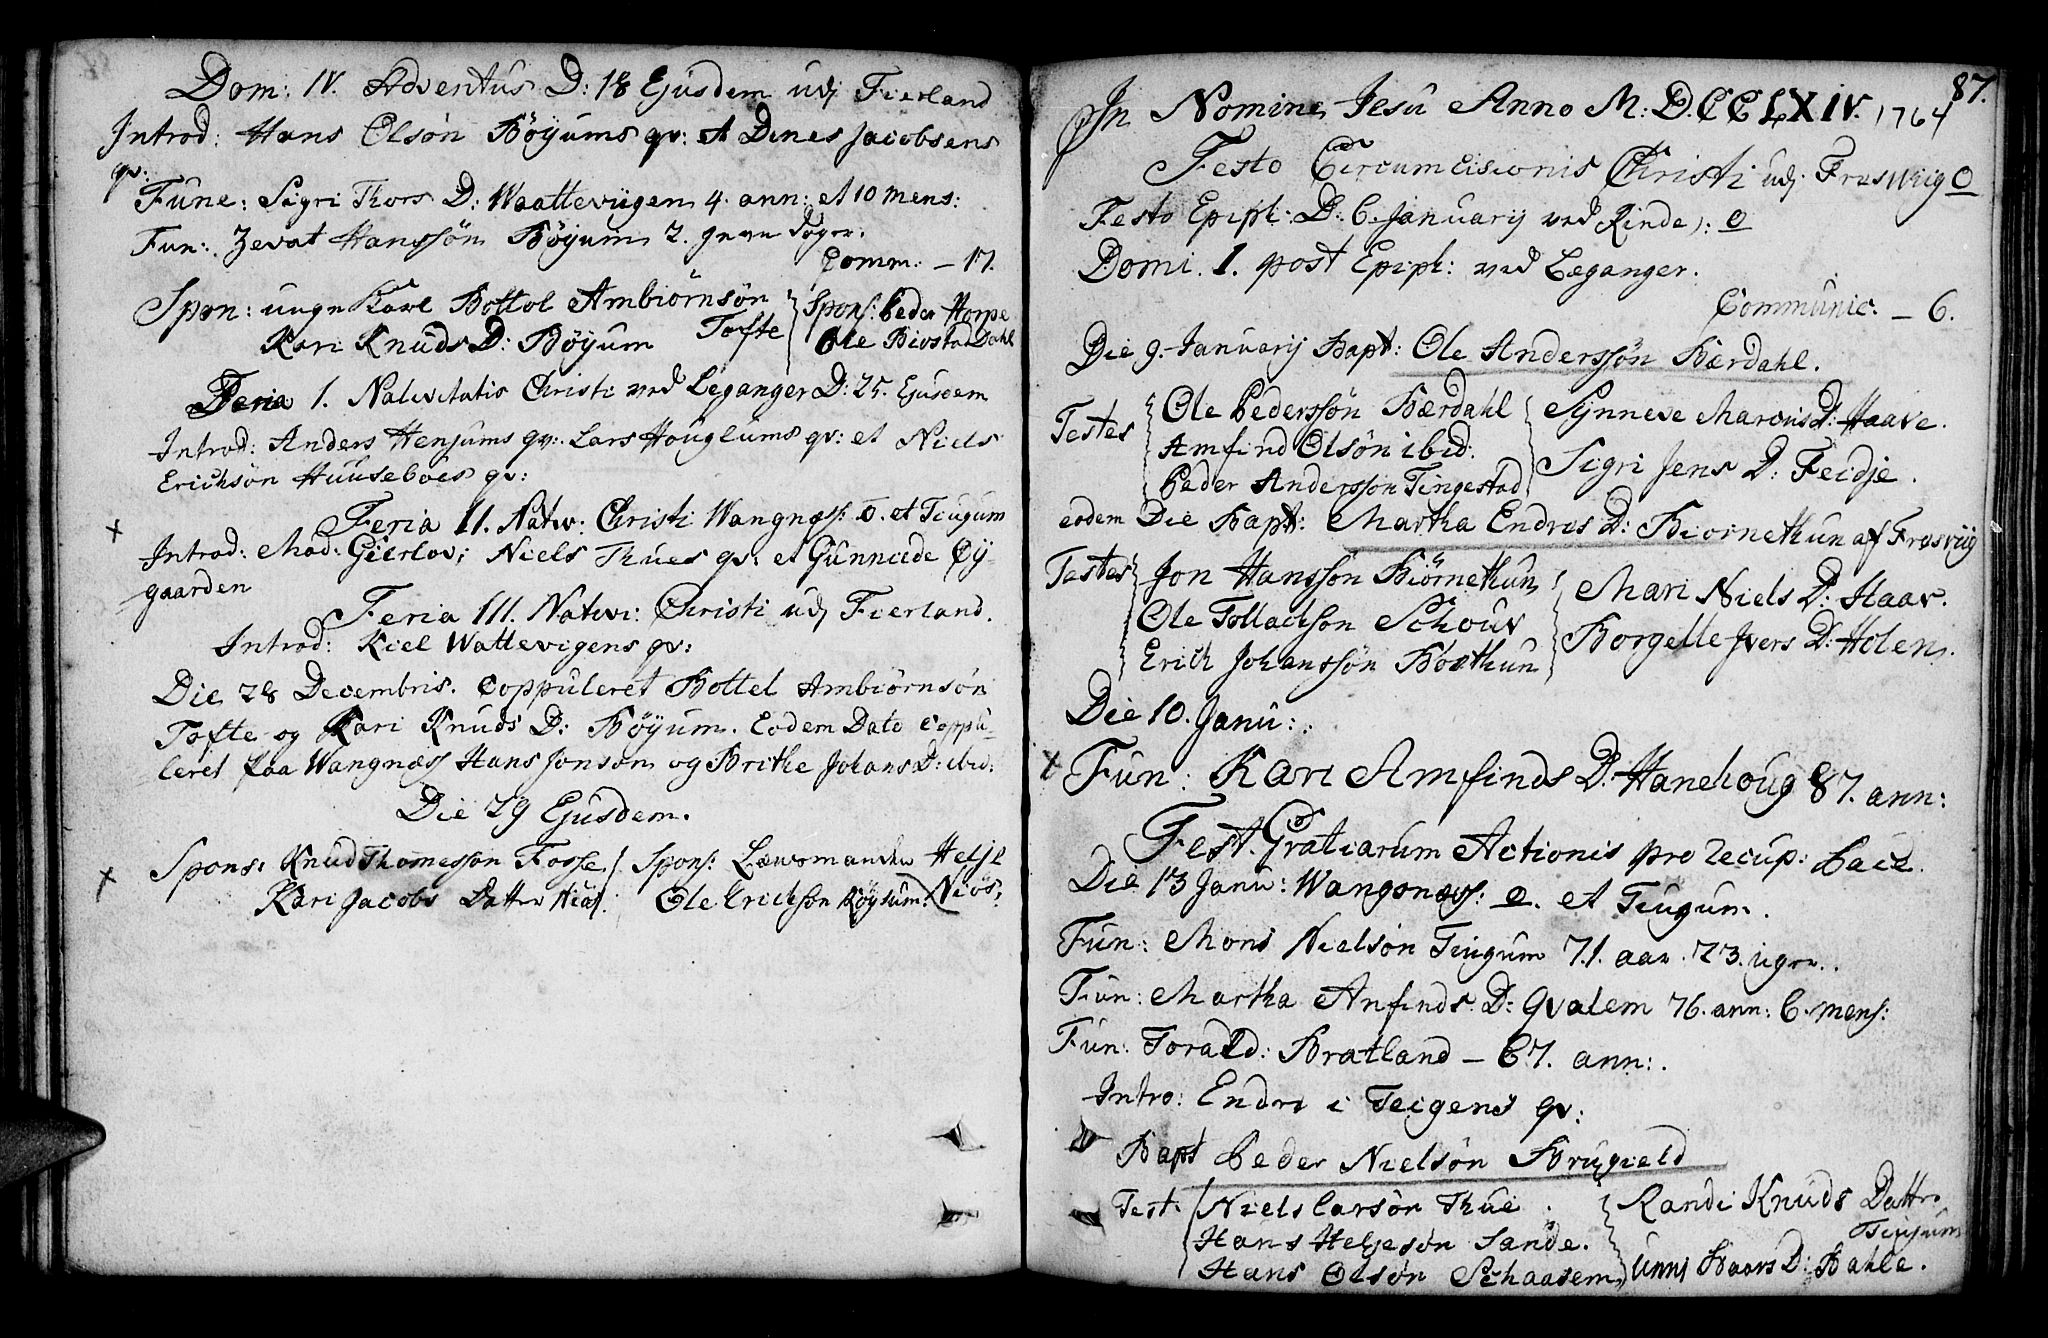 Dom: IV. Adventus D: 18 Ejusdem udj Fierland
Introd: Hans Olsøn Bøyums qv: et Dines Jacobsens
qv:
Fune: Sigri Thors D: Waattevigen 4. ann: et 10 mens:
Fun: Hanssøn Bøyum 2. Dager.
Comm: – 17.
Spon: unge Karl Bottol Ambiørnsøn Tofte
Kari Knuds D: Bøyum
Spons: Peder Horpe
Ole Biostad Dahl
Feria 1. Nativitatis Christi ved Leganger D: 25. Ejusdem
Introd: Anders Henjums qv: Lars Houglums qv: et Niels
Erichsøn Huuseboes qv:
Feria II. Nativ: Christi Wangnæs: o. et Tiugum
Introd: Mad: Gierlov; Niels Thues qv: et Gunnilde Øy-
gaarden
Feria III. Nativi: Christi udj Fierland.
Introd: Kiel Wattevigens qv:
Die 28 Decembris. Coppuleret Bottel Ambiørnsøn
Tofte og Kari Knuds D: Bøyum. Eodem Dato Coppu-
leret paa Wangnæss Hans Jonsøn og Brithe Johans D: ibid:
Die 29 Ejusdem.
Spons: Knud Thomessøn Fosse / Spons: Helje
Kari Jacobs Datter Ole Erichsøn Niøs:
87.
In Nomine Jesu Anno M: D.CCLXIV. 1764
Festo Circumcisionis Christi udj Frøswiig O
Festo Epiph: D: 6. Januarij ved Rinde: o
Domi. 1. post Epiph: ved Leganger.
Communic. – 6.
Die 9. Januarij Bapt: Ole Anderssøn Bærdahl.
Testes Ole Pederssøn Bærdahl
Amfind Olsøn ibid.
Peder Anderssøn Tingestad
Synneve Marcus D: Haave.
Sigri Jens D: Feidje.
eodem Die Bapt: Martha Endres D: Biornethun af Frøsviig
Testes Jon Hanssøn Biörnethun
Ole Tollachsøn Schouv
Erich Johanssøn Boethun
Mari Niels D: Haav.
Borgelle Ivers D: Holen.
Die 10. Janu:
Fun: Kari Amfinds D: Hanehoug 87. ann:
Fest. Gratiarum Actionis pro recup: Pace
Die 13 Janu: Wangsnæss: o. et Tiugum.
Fun: Mons Nielsøn Tiugum 71. aar. 23. uger.
Fun: Martha Anfinds D: Qvalem 76. ann: 6. mens:
Fun: Torald: Bratland – 67. ann:
Intro: Endre i Teigens qv:
Bapt Peder Nielsøn Brugield
Test. Niels Larsøn Thue.
Hans Heljesøn Sande.
Hans Olsøn Schaasem
Randi Knuds Datter
Tiugum
Unni Baars D: Bahle.